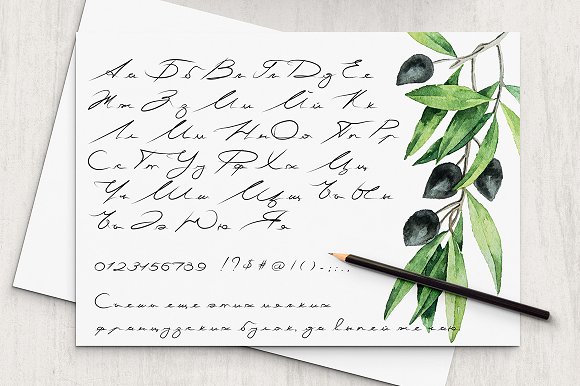 Аа Бб Вв Гг Дд Ее
Жж Зз Ии Йй Кк
Лл Мм Нн Оо Пп Рр
Сс Тт Уу Фф Хх Цц
Чч Шш Щщ Ъъ Ыы
Ьь Ээ Юю Яя
0123456789 !?$#@!()-.;:.
Съешь еще этих мягких
французских булок, да выпей же чаю